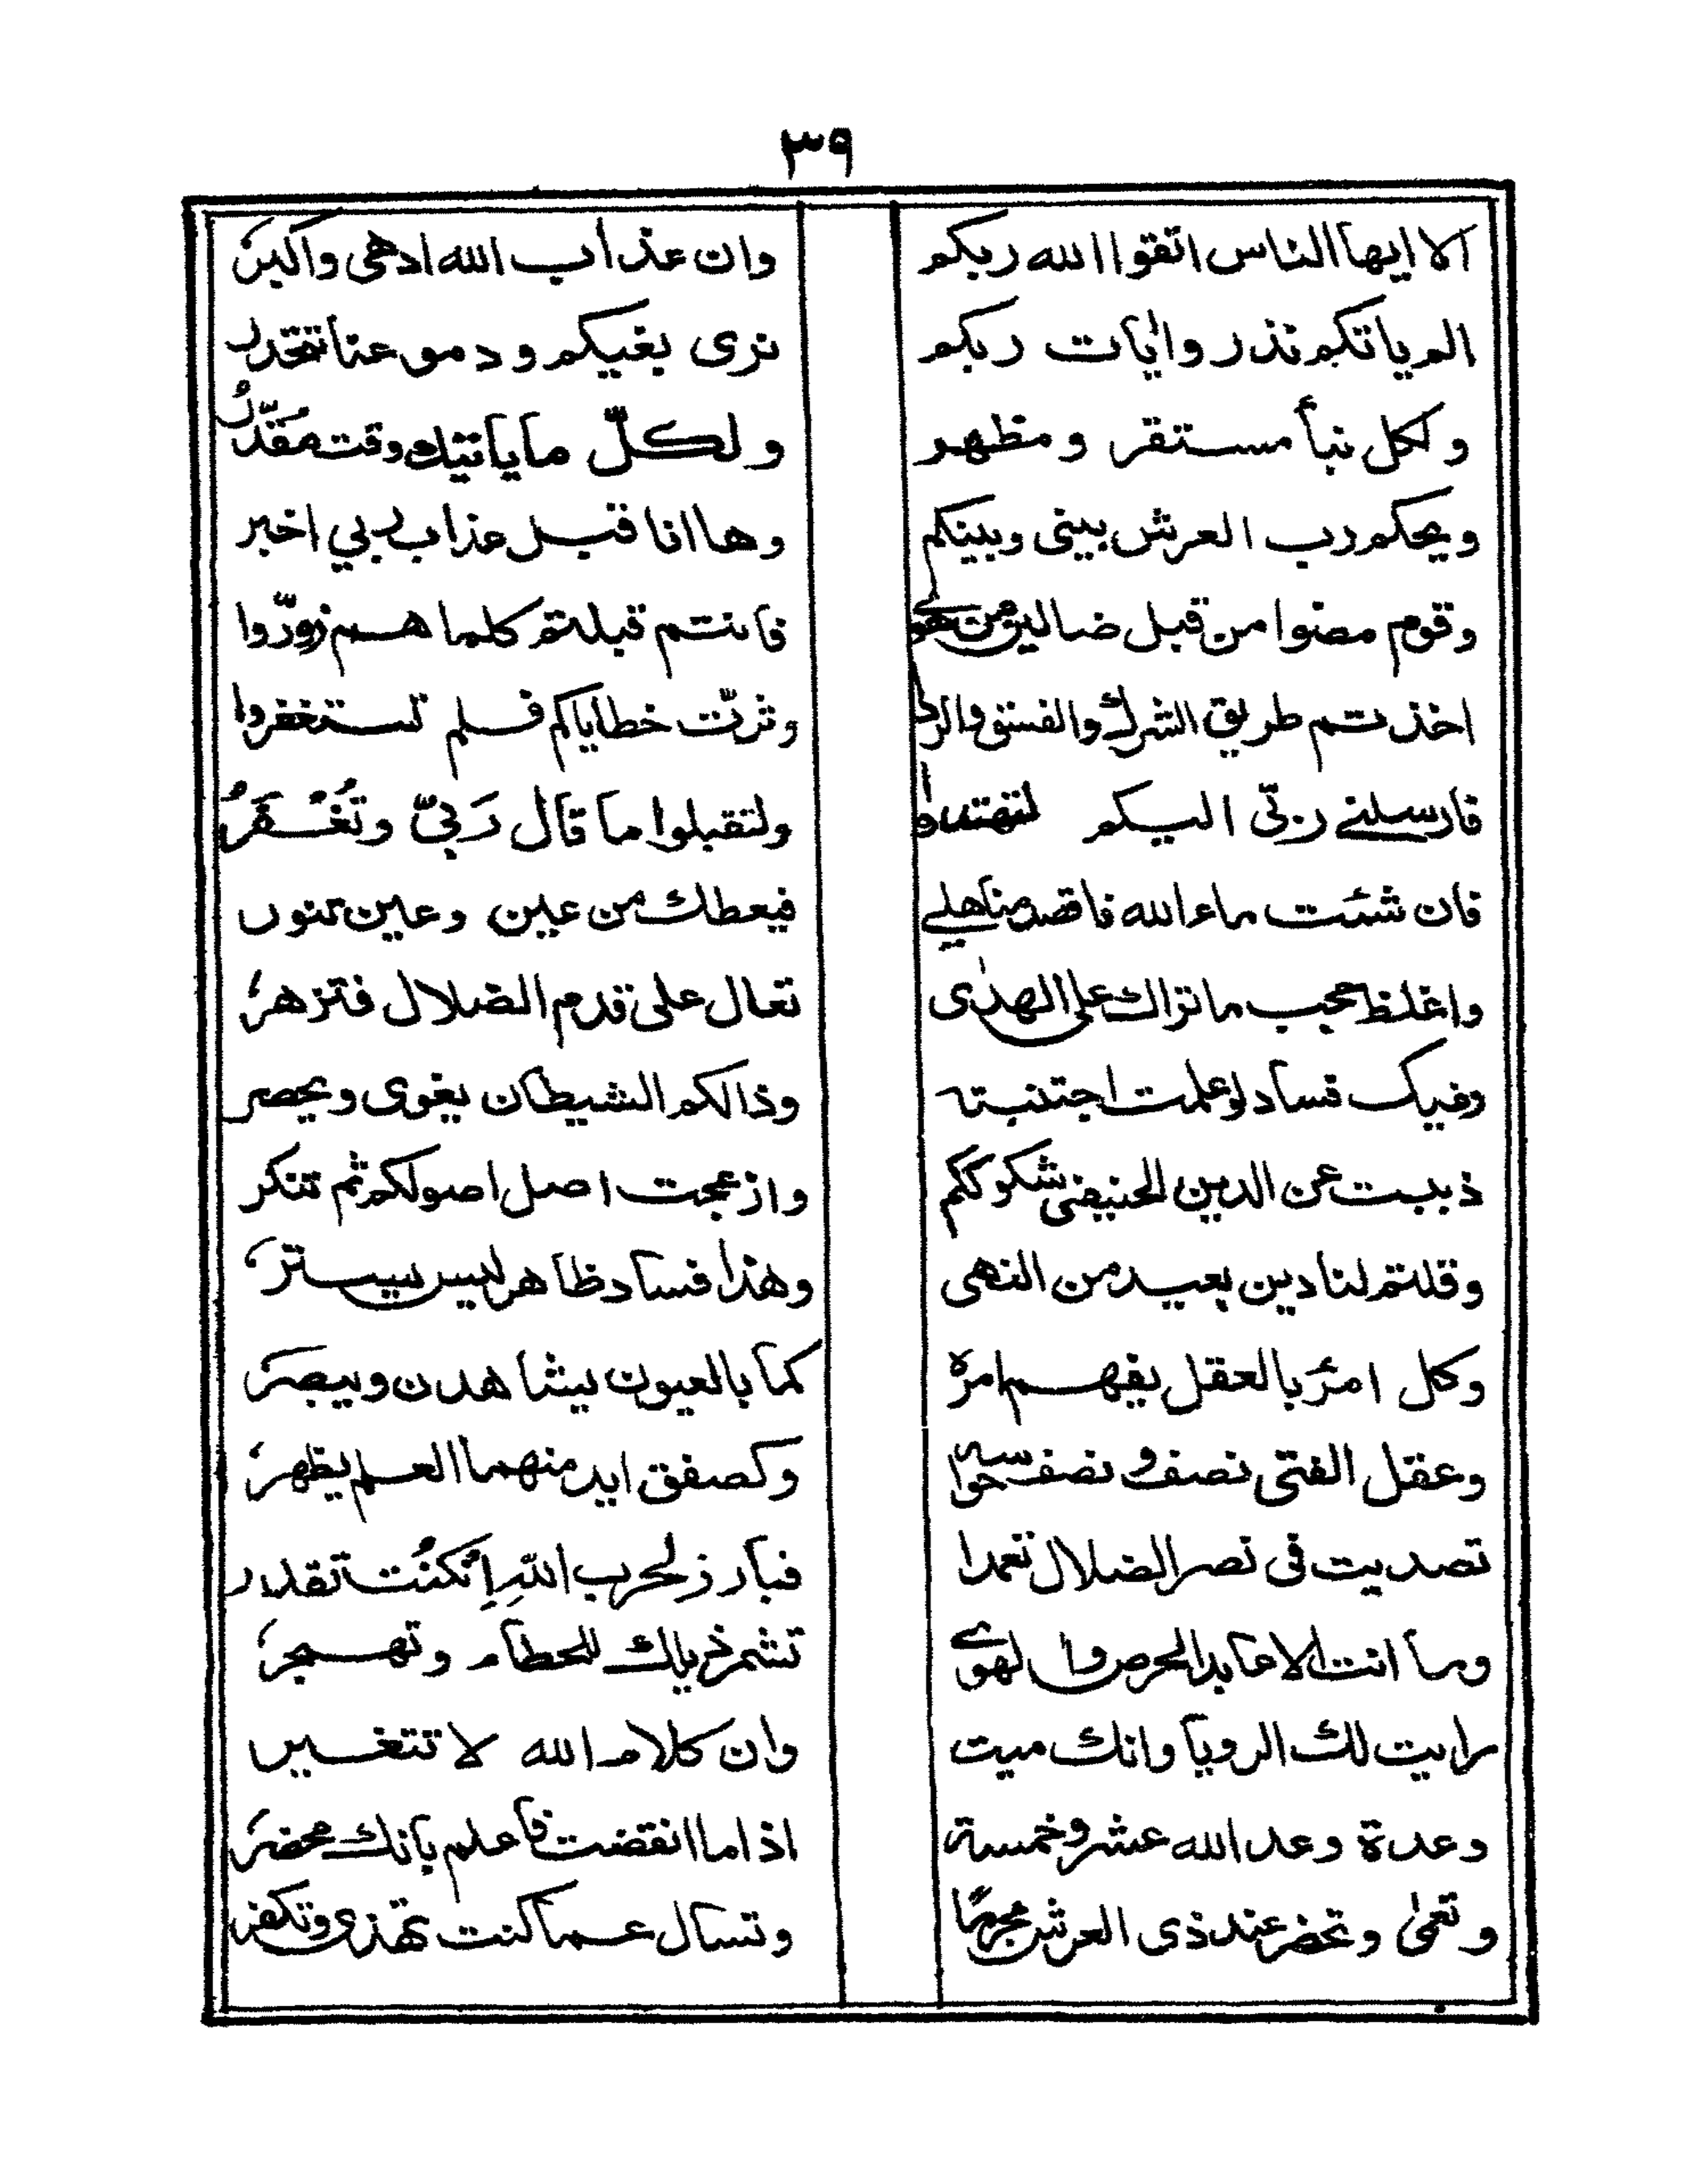 ٣٩
الا ايها الناس اتقوا الله ربكم وان عذاب الله ادهى واكبر
الم ياتكم نذر وايات ربكم نرى بغيكم ودموعنا تتحدر
ولكل نبأ مستقر ومظهر ولكلّ ما ياتيك وقت مقدّرُ
ويحكم رب العرش بيني وبينكم وها انا قبل عذاب ربي اخبر
وقوم مضوا من قبل ضالين من فانتم قبلتم كلما هم زوّروا
اخذتم طريق الشرك والفسق والردا وثرت خطاياكم فلم تستغفروا
فارسلني ربّى اليكم ولتقبلوا ما قال رَبّيّ وتُغْفَرُ
فان شئت ماء الله فاقصد مناهلي فيعطك من عين وعين تنور
واغلظ حجب ما نراك على الهدى تعال على قدم الضلال فتزهر
وفيك فساد لو علمت اجتنبته وذالكم الشيطان يغوى ويحصر
ذببت عن الدين الحنيفى شكوككم وازعجت اصل اصولكم ثم تنكر
وقلتم لنا دين بعيد من النهى وهذا فساد ظاهر ليس يستر
وكل امرء بالعقل يفهم امره كما بالعيون يشاهدن ويبصر
وعقل الفتى نصف ونصف حواسه وكصفق ايد منهما العلم يظهر
تصديت فى نصر الضلال تعمدا فبارز لحرب اللّهِ اِنْ كنُت تقدر
وما انت الا عابد الحرص والهوى تشمر ذيالك للحطام وتهجر
رايت لك الرويا وانك ميت وان كلام الله لا تتغير
وعدة وعد الله عشر وخمسة اذا ما انقضت فاعلم بانك محضر
وتعمى وتحضر عند ذى العرش مجرمًا وتسال عما كنت تهذى وتكفر